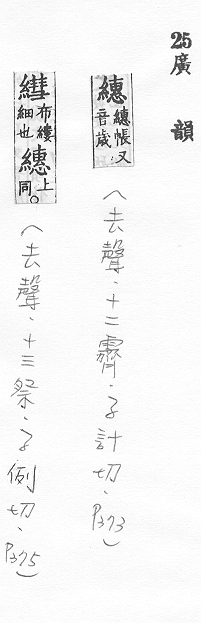 25廣韻
繐繐帳又音歲
(去聲.十二霽.子計切.P373)
布縷細也繐上同。
(去聲.十三祭.子例切.P375)